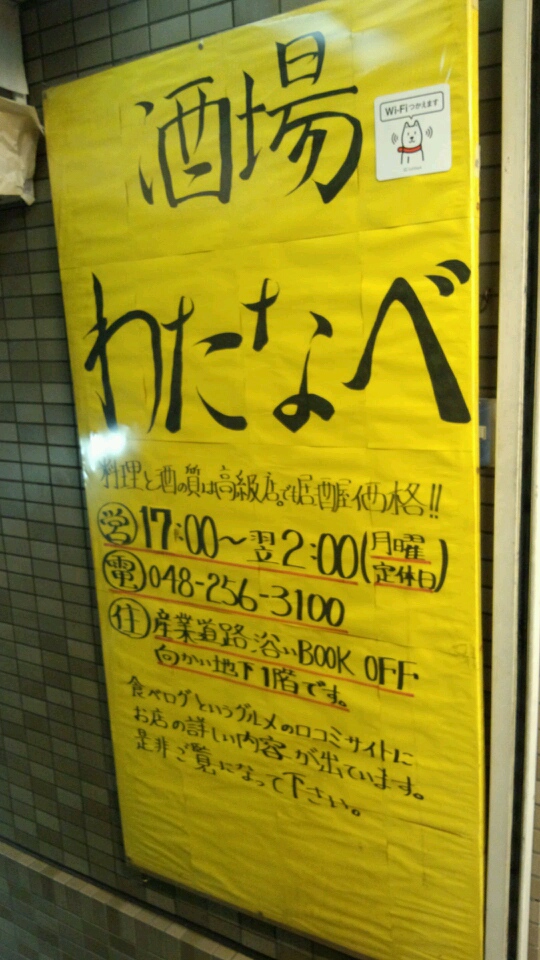 酒場
Wi-Fiつかえます
わたなべ
料理と酒の質は高級店で居酒屋価格!!
営 17:00～翌2:00(月曜定休日)
電 048-256-3100
住 産業道路沿いBOOK OFF
向かい地下1階です。
食べログというグルメの口コミサイトに
お店の詳しい内容が出ています。
是非ご覧になって下さい。